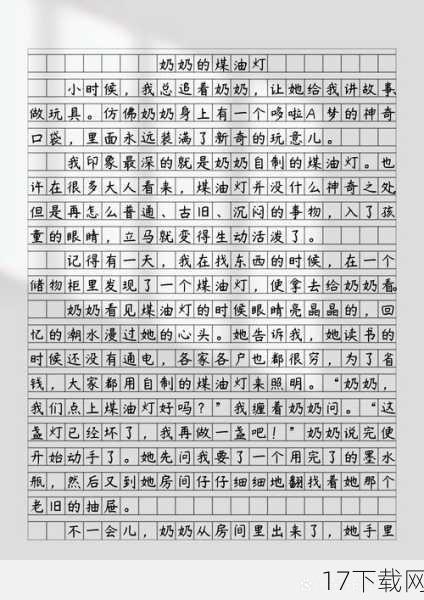 奶奶的煤油灯
小时候，我总追着奶奶，让她给我讲故事、
做玩具。仿佛奶奶身上有一个哆啦A梦的神奇
口袋，里面永远装满了新奇的玩意儿。
我印象最深的就是奶奶自制的煤油灯。也
许在很多大人看来，煤油灯并没什么神奇之处，
但是再怎么普通、古旧、沉闷的事物，入了孩
童的眼睛，立马就变得生动活泼了。
记得有一天，我在找东西的时候，在一个
储物柜里发现了一个煤油灯，便拿去给奶奶看。
奶奶看见煤油灯的时候眼睛亮晶晶的，回
忆的潮水漫过她的心头。她告诉我，她读书的
时候还没有通电，各家各户也都很穷，为了省
钱，大家都用自制的煤油灯来照明。“奶奶，
我们点上煤油灯好吗？”我缠着奶奶问。“这
盏灯已经坏了，我再做一盏吧！”奶奶说完便
开始动手了。她先问我要了一个用完了的墨水
瓶，然后又到她房间仔仔细细地翻找着她那个
老旧的抽屉。
不一会儿，奶奶从房间里出来了，她手里
17下载网